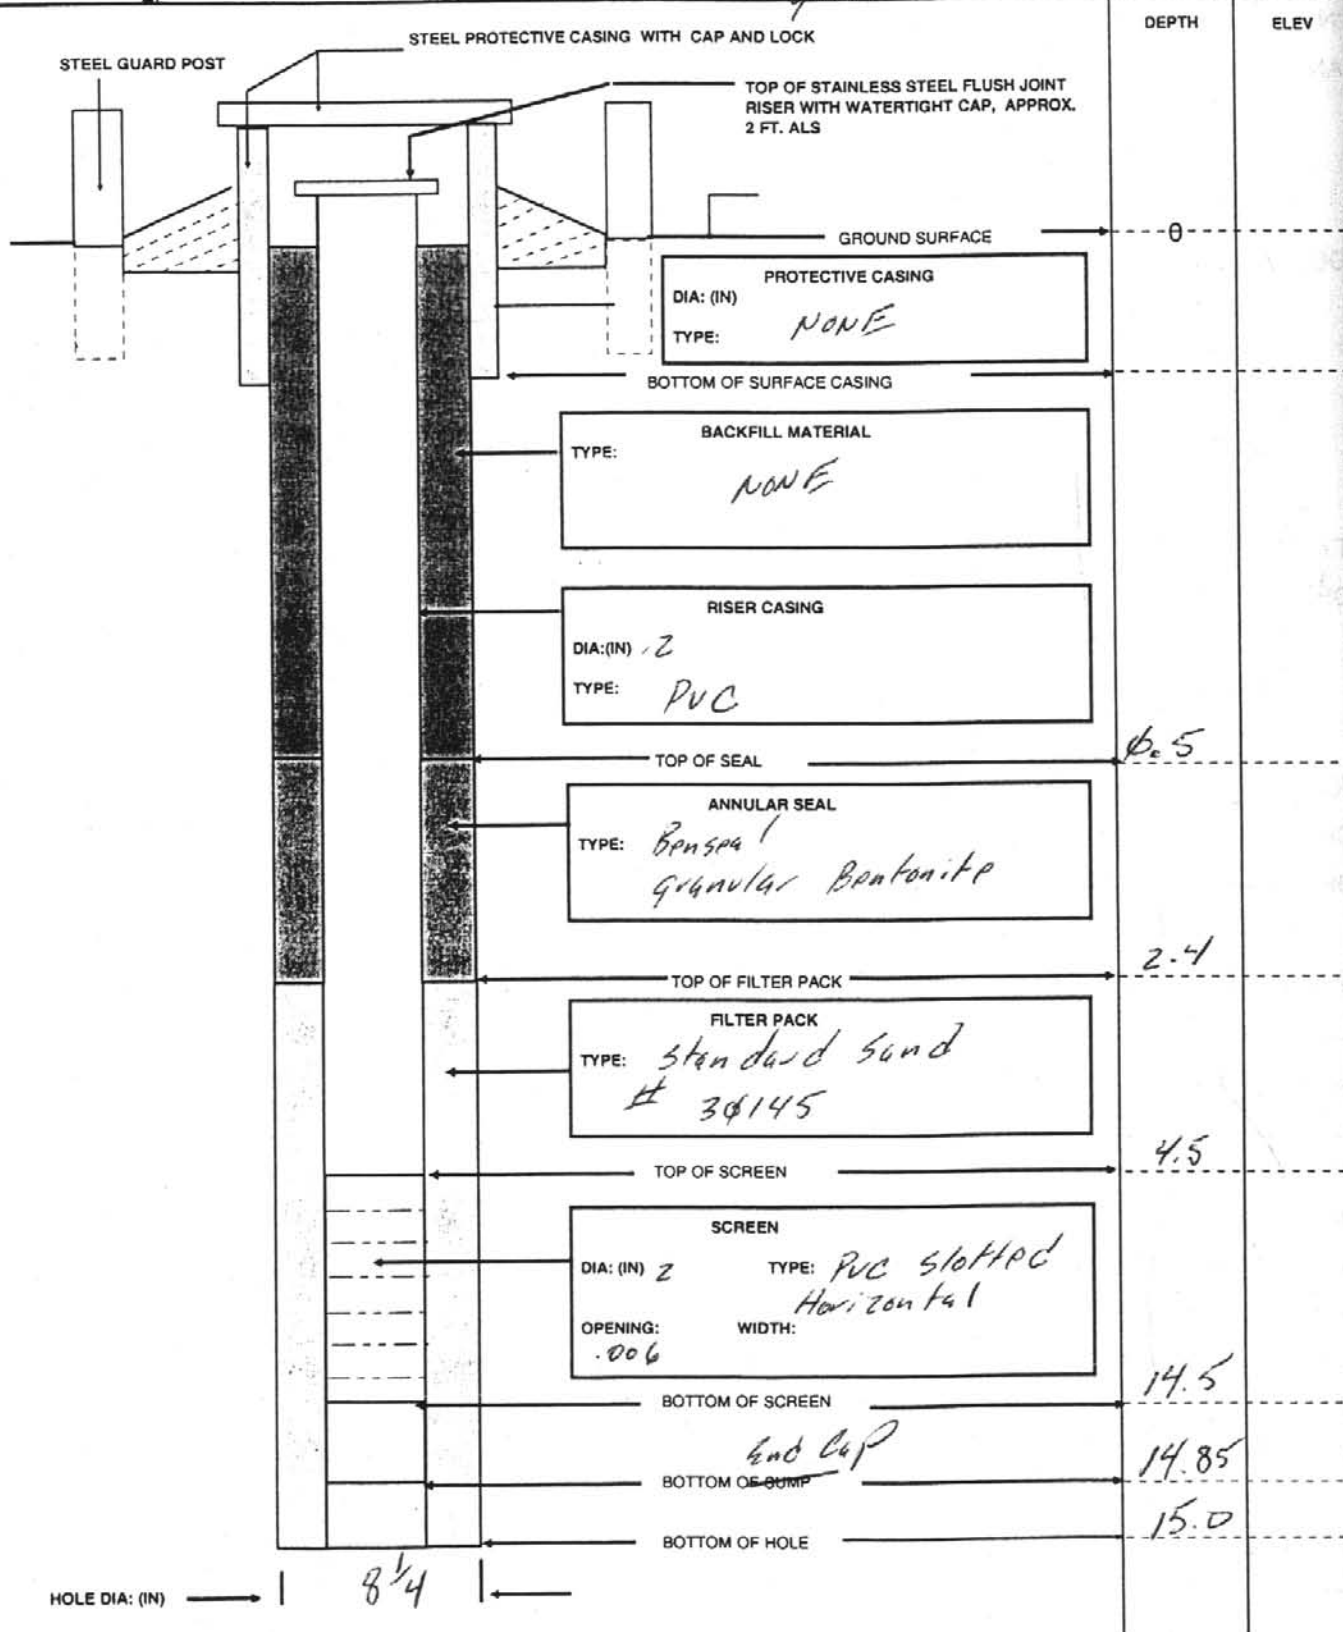 DEPTH
ELEV
STEEL PROTECTIVE CASING WITH CAP AND LOCK
STEEL GUARD POST
TOP OF STAINLESS STEEL FLUSH JOINT
RISER WITH WATERTIGHT CAP, APPROX.
2 FT. ALS
GROUND SURFACE
0
PROTECTIVE CASING
DIA: (IN)
TYPE: NONE
BOTTOM OF SURFACE CASING
BACKFILL MATERIAL
TYPE:
NONE
RISER CASING
DIA:(IN) 2
TYPE: PVC
TOP OF SEAL
0.5
ANNULAR SEAL
TYPE: Benseal
Granular Bentonite
TOP OF FILTER PACK
2.4
FILTER PACK
TYPE: Standard Sand
# 30145
TOP OF SCREEN
4.5
SCREEN
DIA: (IN) 2 TYPE: PVC Slotted
Horizontal
OPENING: WIDTH:
.006
BOTTOM OF SCREEN
14.5
End Cap
BOTTOM OF SUMP
14.85
BOTTOM OF HOLE
15.0
HOLE DIA: (IN) 8 1/4